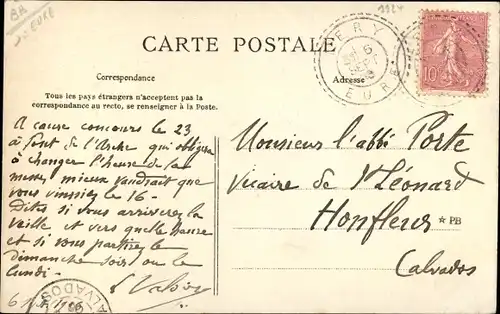 BB
S/EURE
1324
CARTE POSTALE
Correspondance
Adresse
Tous les pays étrangers n'acceptent pas la
correspondance au recto, se renseigner à la Poste.
ERY
6
SEPT
EURE
10
A cause concours le 23
à Pont de l'Arche qui obligera
à changer l'heure de la
messe mieux vaudrait que
vous vinssiez le 16 -
Dites si vous arriverez la
veille et vers quelle heure
et si vous partirez le
dimanche soir ou le
lundi -
6
CALVADOS
Monsieur l'abbé Porte
vicaire de St Léonard
Honfleur
* PB
Calvados